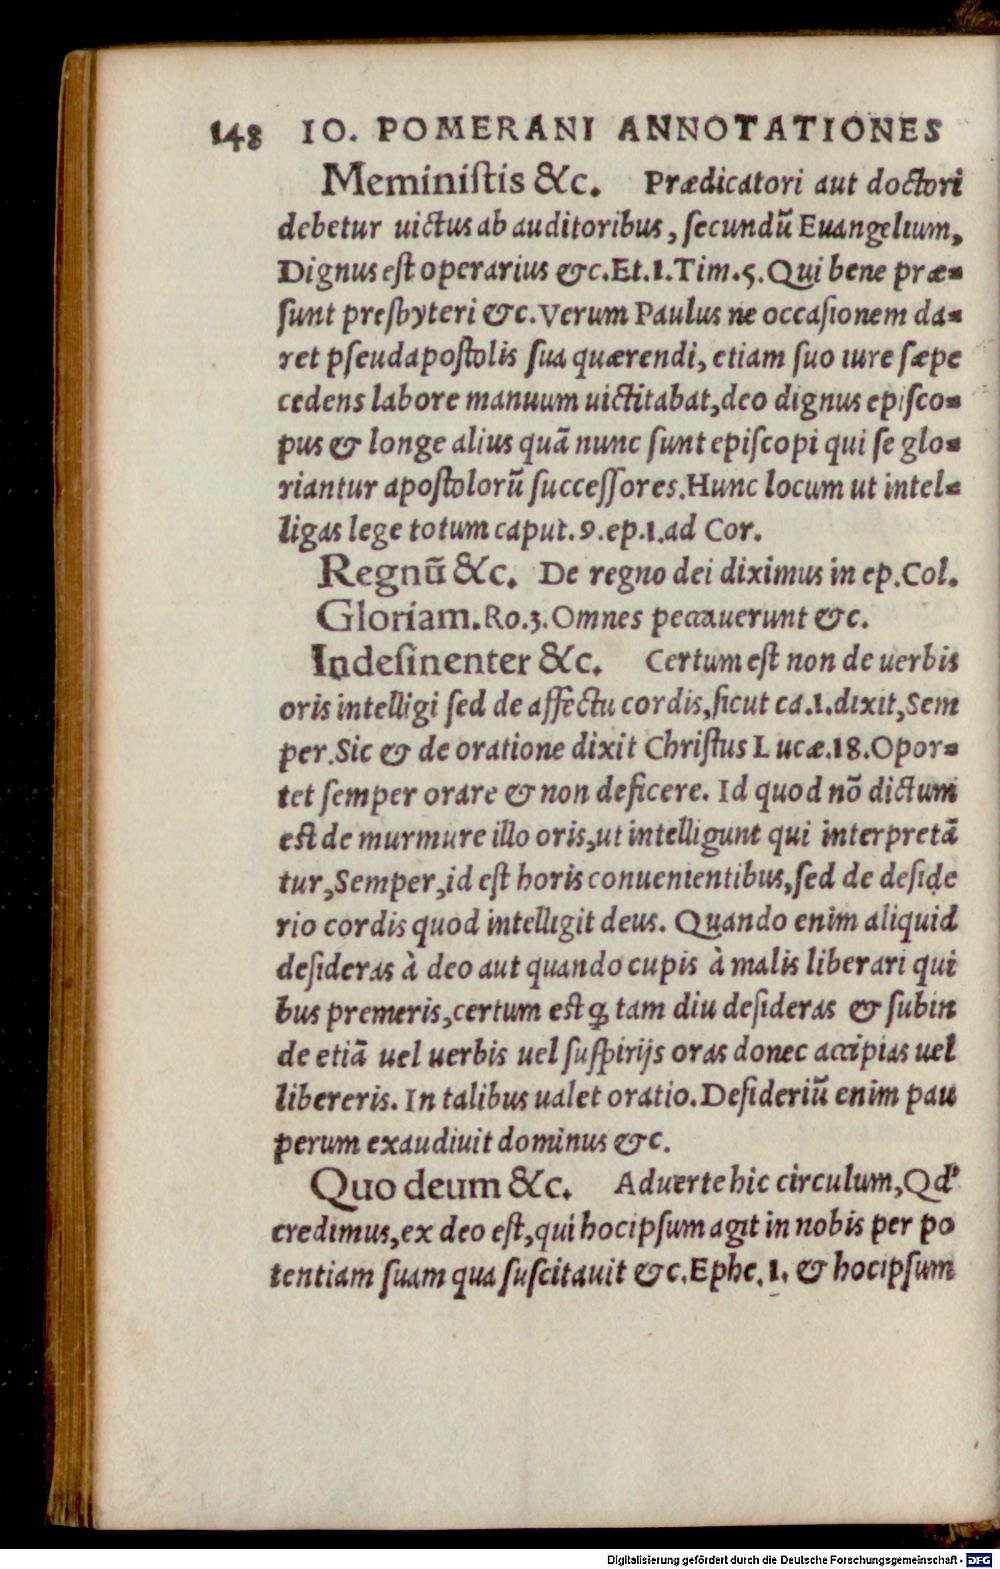 148 IO. POMERANI ANNOTATIONES
Meminiſtis &c. Prædicatori aut doctori
debetur uictus ab auditoribus, ſecundū Euangelium,
Dignus eſt operarius &c. Et. 1. Tim. 5. Qui bene præ-
ſunt presbyteri &c. Verum Paulus ne occaſionem da-
ret pſeudapoſtolis ſua quærendi, etiam ſuo iure ſæpe
cedens labore manuum uictitabat, deo dignus epiſco-
pus & longe alius quā nunc ſunt epiſcopi qui ſe glo-
riantur apoſtolorū ſucceſſores. Hunc locum ut intel-
ligas lege totum caput. 9. ep. 1. ad Cor.
Regnū &c. De regno dei diximus in ep. Col.
Gloriam. Ro. 3. Omnes peccauerunt &c.
Indeſinenter &c. Certum eſt non de uerbis
oris intelligi ſed de affectu cordis, ſicut ca. 1. dixit, Sem
per. Sic & de oratione dixit Chriſtus Lucæ. 18. Opor-
tet ſemper orare & non deficere. Id quod nō dictum
eſt de murmure illo oris, ut intelligunt qui interpretā
tur, Semper, id eſt horis conuenientibus, ſed de deſide
rio cordis quod intelligit deus. Quando enim aliquid
deſideras à deo aut quando cupis à malis liberari qui
bus premeris, certum eſt ꝙ tam diu deſideras & ſubin
de etiā uel uerbis uel ſuſpirijs oras donec accipias uel
libereris. In talibus ualet oratio. Deſideriū enim pau
perum exaudiuit dominus &c.
Quo deum &c. Aduerte hic circulum, Qd'
credimus, ex deo eſt, qui hocipſum agit in nobis per po
tentiam ſuam qua ſuſcitauit &c. Ephe. 1. & hocipſum
Digitalisierung gefördert durch die Deutsche Forschungsgemeinschaft - DFG